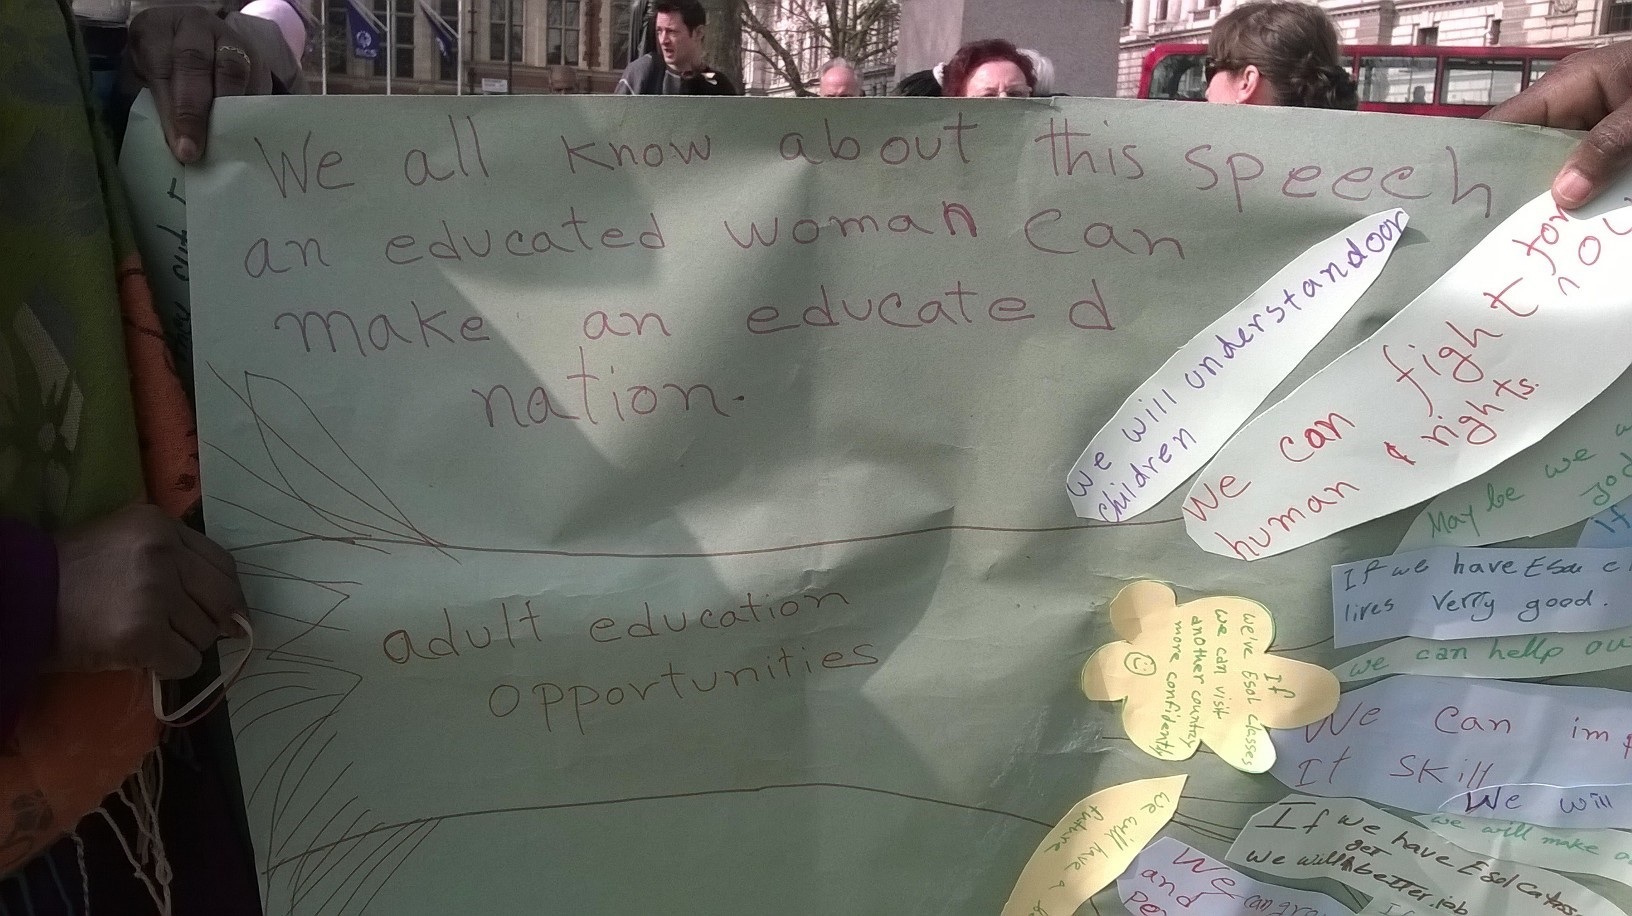 We all know about this speech
an educated woman can
make an educated
nation.
adult education
opportunities
We will understandoor
children
We can fight for
human & rights.
May be we
If
If we have Esol
lives verry good.
we can hellp
If
we've Esol classes
we can visit
another country
more confidently
We can
It skill
We will
we will make
If we have Esol
get
we will better job
We will have a
future
We can
and